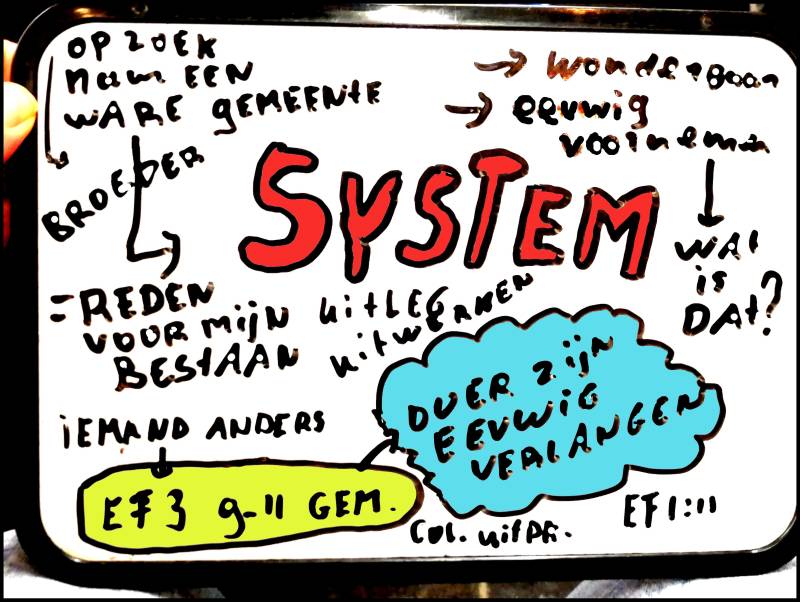 OP ZOEK
naar EEN
WARE GEMEENTE
BROEDER
→ eeuwig
voornemen
SYSTEM
WAt
is
DAt?
= REDEN
VOOR mijn
BEStAAN
uitLEG
uitWERKEN
OVER zijn
EEUWIG
VERLANGEN
iEMAND ANDERS
EF 3 9-11 GEM.
EF 1:11
COL.